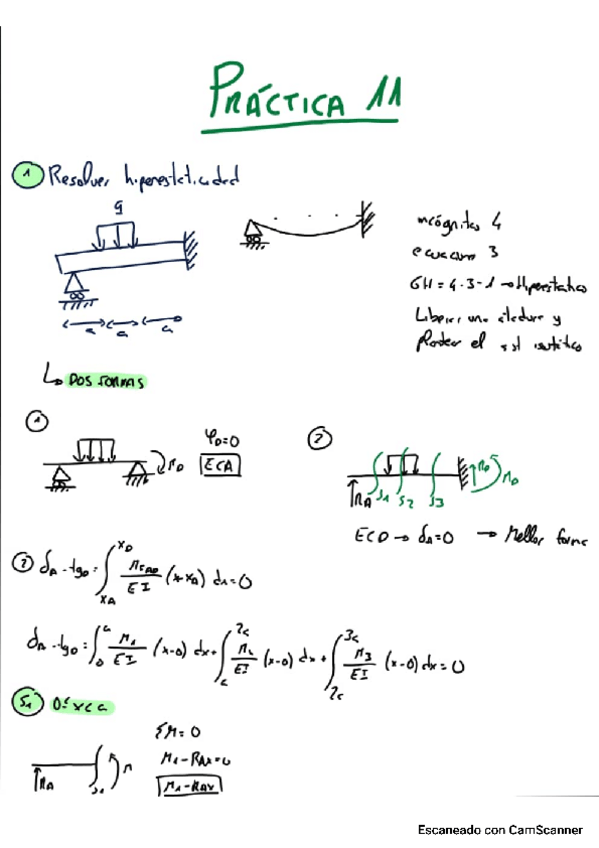 PRÁCTICA 11
1 Resolver hiperestaticidad
q
incógnitas 4
ecuacion 3
GH = 4-3-1 → Hiperstatico
Liberar una atadura y
a a a
↳ DOS FORMAS
1
φD=0
ECA
MD
2
RA S1 S2 S3 RD MD
ECD → δA=0 → Mellor forma
2 δA-tgD = ∫ xA xD MFAD/EI (x-xA) dx=0
δA-tgD = ∫ 0 a M1/EI (x-0) dx+ ∫ a 2a M2/EI (x-0) dx + ∫ 2a 3a M3/EI (x-0) dx = 0
S1 0≤x≤a
ΣM=0
M1-RAx=0
M1=RAx
RA S1 M
Escaneado con CamScanner